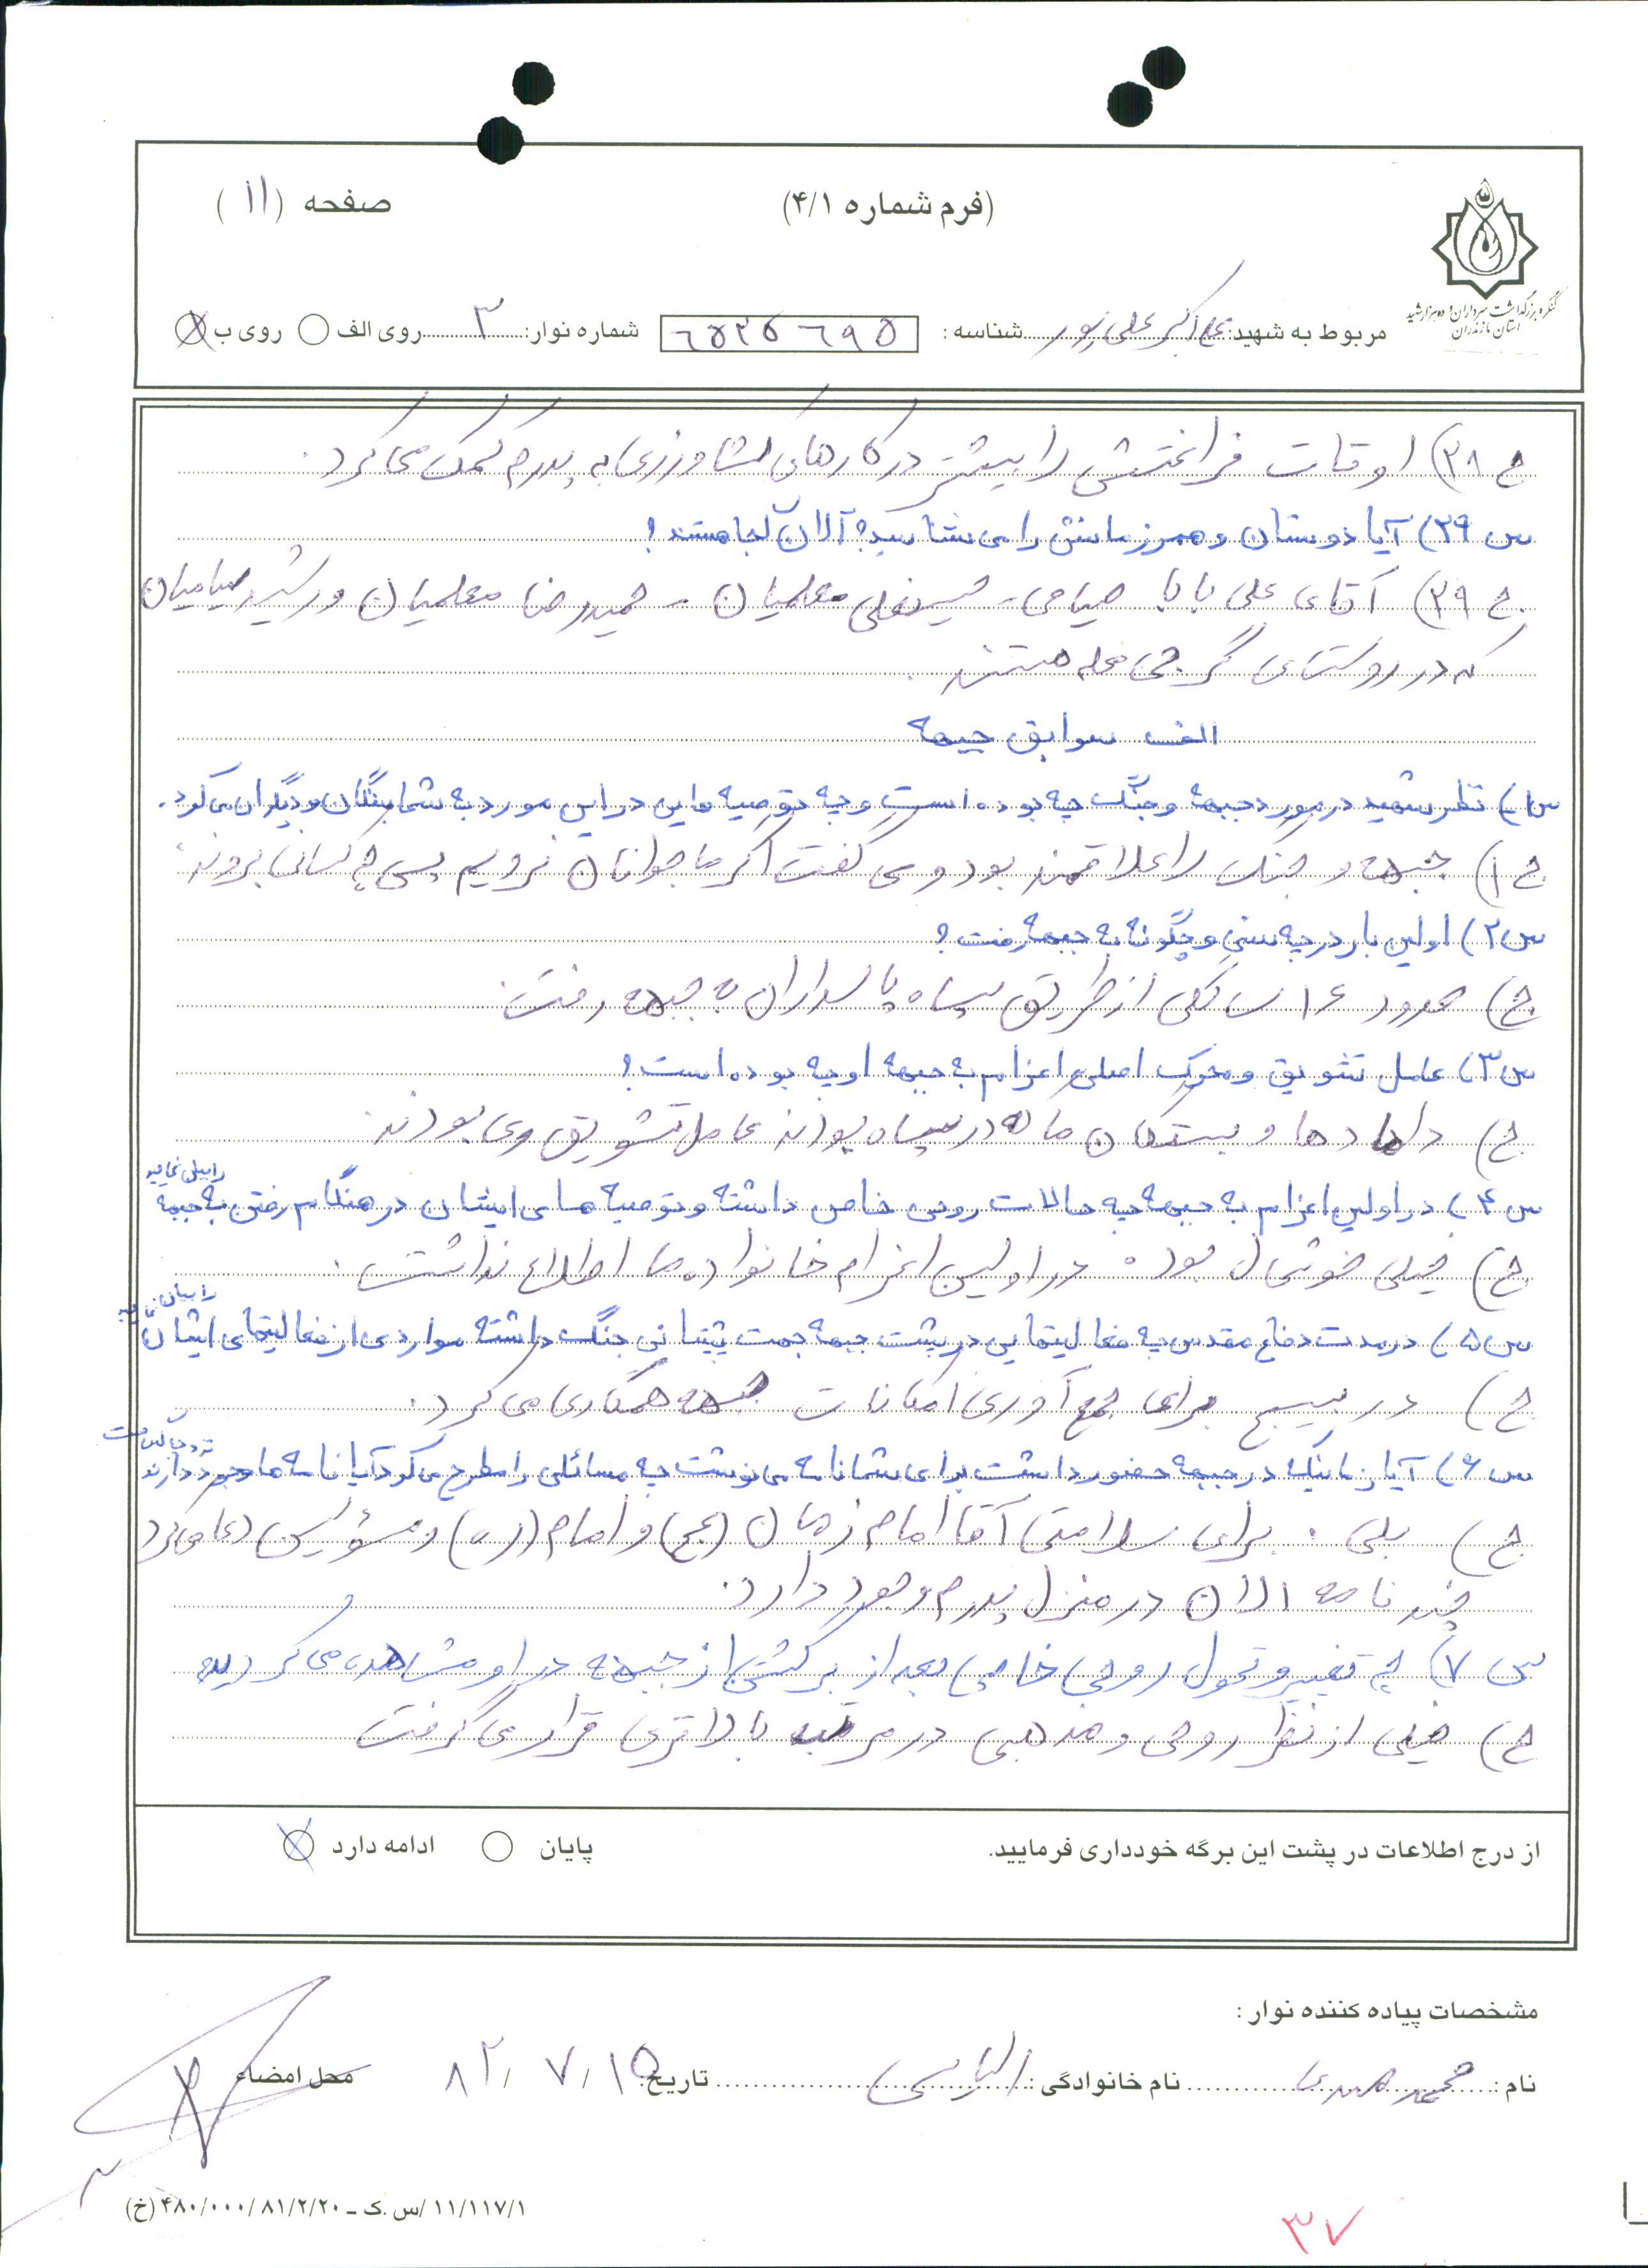 (فرم شماره ۴/۱)
صفحه (۱۱)
کنگره بزرگداشت سرداران و ده هزار شهید
استان مازندران
مربوط به شهید: علی اکبر علی پور شناسه: ٦٥٢٥٦٩٥ شماره نوار: ۳ روی الف روی ب
ج ۲۸) اوقات فراغتش را بیشتر در کارهای کشاورزی به پدرم کمک می کرد.
س ۲۹) آیا دوستان و همرزمانش را می شناسید؟ الان کجا هستند؟
ج ۲۹) آقای علی بابا صیامی - حسینعلی معلمیان - حمیدرضا معلمیان و رشید صیامیان
که در روستای گرجی محله هستند.
الف سوابق جبهه
س ۱) نظر شهید در مورد جبهه و جنگ چه بوده است و چه توصیه هایی در این مورد به شما بستگان و دیگران می کرد.
ج ۱) جبهه و جنگ را علاقمند بود و می گفت اگر ما جوانان نرویم پس چه کسانی بروند؟
س ۲) اولین بار در چه سنی و چگونه به جبهه رفت؟
ج) حدود ۱۶ سالگی از طریق سپاه پاسداران به جبهه رفت.
س ۳) عامل تشویق و محرک اصلی اعزام به جبهه او چه بوده است؟
ج) دامادها و بستگان ما که در سپاه بودند عامل تشویق وی بودند.
س ۴) در اولین اعزام به جبهه چه حالات روحی خاص داشته و توصیه های ایشان در هنگام رفتن به جبهه را بیان نمایید
ج) خیلی خوشحال بود. در اولین اعزام خانواده ما اطلاع نداشت.
س ۵) در مدت دفاع مقدس چه فعالیتهایی در پشت جبهه جهت پشتیبانی جنگ داشته مواردی از فعالیتهای ایشان را بیان نمایید
ج) در بسیج برای جمع آوری امکانات جبهه همکاری می کرد.
س ۶) آیا زمانیکه در جبهه حضور داشت برای شما نامه می نوشت چه مسائلی را مطرح می کرد آیا نامه ها وجود دارند
ج) بلی. برای سلامتی آقا امام زمان (عج) و امام (ره) و مسؤلین دعا می کرد
چند نامه الان در منزل پدرم وجود دارد.
س ۷) چه تغییر و تحول روحی خاصی بعد از برگشتن از جبهه در او مشاهده می کردید
ج) خیلی از نظر روحی و مذهبی در مرتبه بالاتری قرار می گرفت
از درج اطلاعات در پشت این برگه خودداری فرمایید.
ادامه دارد پایان
مشخصات پیاده کننده نوار:
نام: محمد مهدی نام خانوادگی: الیاسی تاریخ: ۸۲/۷/۱۵ محل امضاء
۱۱/۱۱۷/۱/س.ک ـ ۴۸۰/۰۰۰/۸۱/۲/۲۰ (خ)
۳۷